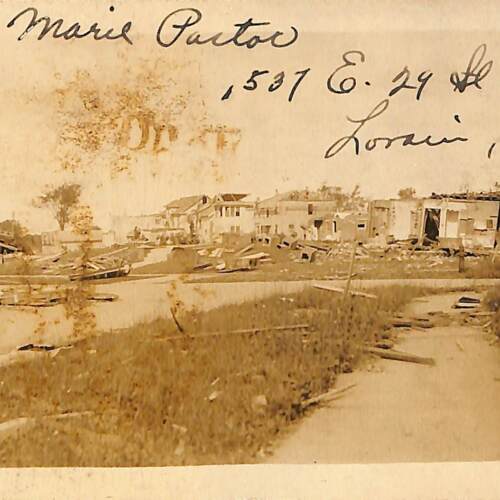 Marie Pastor
1537 E. 29 St
Lorain,